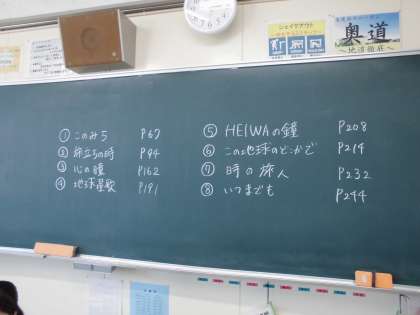 ① このみち P67
② 旅立ちの時 P94
③ 心の瞳 P162
④ 地球星歌 P191
⑤ HEIWAの鐘 P208
⑥ この地球のどこかで P214
⑦ 時の旅人 P232
⑧ いつまでも P244
シェイクアウト
奥道
～地道徹底～